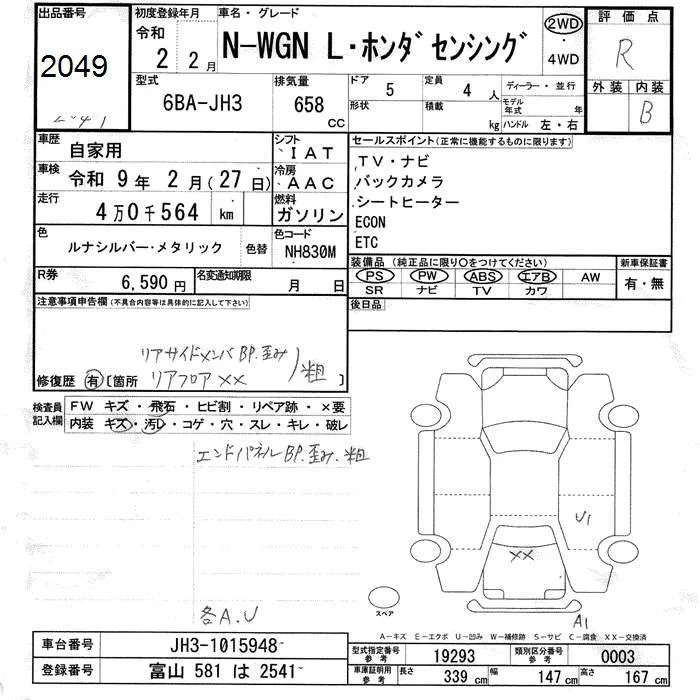 出品番号 初度登録年月 車名・グレード 評価点
2049 令和 2 2月 N-WGN L・ホンダセンシング 2WD・4WD R
型式 排気量 ドア 5 定員 4人 ディーラー・並行 外装 内装
6BA-JH3 658 CC 形状 積載 kg モデル年式 年 ハンドル 左・右 B
車歴 自家用 シフト IAT セールスポイント(正常に機能するものに限ります)
車検 令和 9年 2月(27日) 冷房 AAC TV・ナビ
バックカメラ
走行 4万0千564 km 燃料 ガソリン シートヒーター
ECON
色 ルナシルバー・メタリック 色替 色コード NH830M ETC
R券 6,590円 名変通知期限 月 日 装備品(純正品に限り○をつけてください) 新車保証書
PS PW ABS エアB AW 有・無
SR ナビ TV カワ
注意事項申告欄(不具合内容等は具体的に記入して下さい) 後日品
リアサイドメンバBP.歪み
修復歴 有〔箇所 リアフロアXX 粗〕
検査員記入欄 FW キズ・飛石・ヒビ割・リペア跡・×要
内装 キズ・汚レ・コゲ・穴・スレ・キレ・破レ
エンドパネルBP.歪み.粗
U1
XX
スペア
各A.U
A1
A-キズ E-エクボ U-凹み W-補修跡 S-サビ C-腐食 XX-交換済
車台番号 JH3-1015948 型式指定番号 参考 19293 類別区分番号 参考 0003
登録番号 富山 581 は 2541 車庫証明用 参考 長さ 339cm 幅 147cm 高さ 167cm